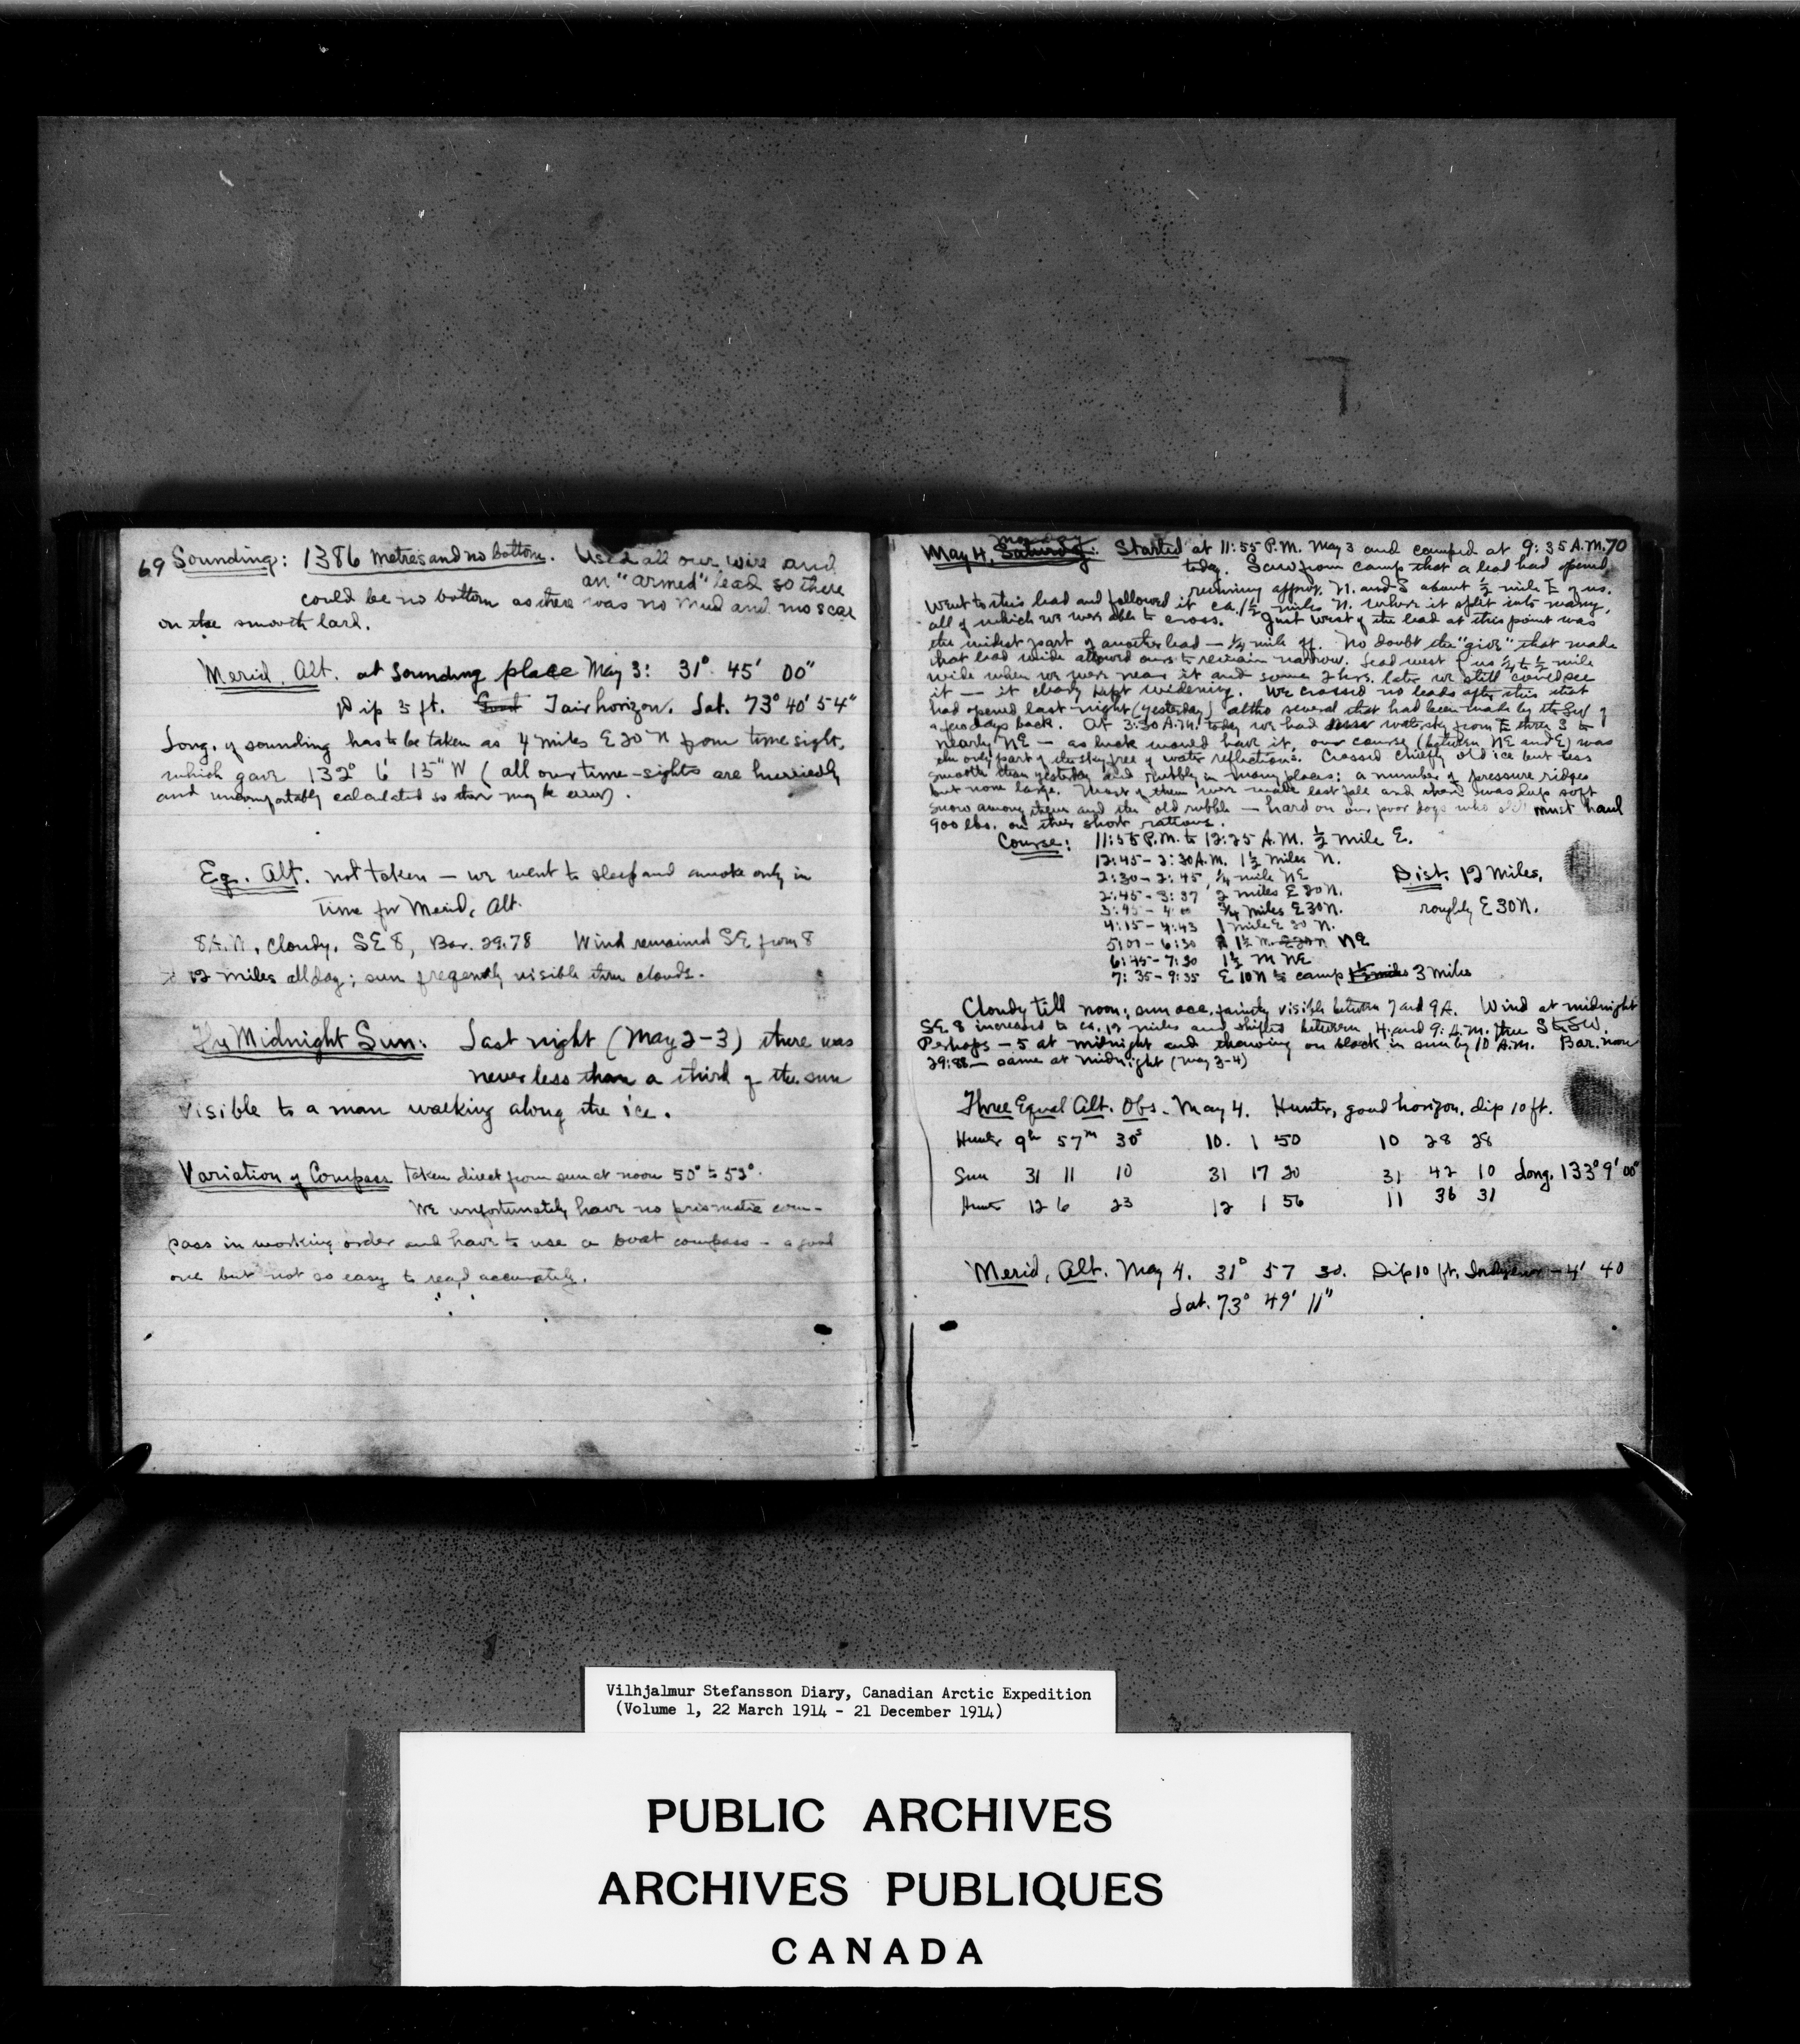 69 Sounding: 1386 metres and no bottom. Used all our wire and
an "armed" lead so there
could be no bottom as there was no mud and no scar
on the smooth lard.
Merid. Alt. at Sounding place May 3: 31° 45' 00"
Dip 5 ft. Good Fair horizon. Lat. 73° 40' 54"
Long. of sounding has to be taken as 4 miles E 20 N from time sight,
which gave 132° 6' 15" W (all our time-sights are hurriedly
and uncomfortably calculated so there may be error).
Eq. Alt. not taken — we went to sleep and awoke only in
time for Merid. Alt.
8 A.M. Cloudy, SE 8, Bar. 29.78 Wind remained SE from 8
to 12 miles all day; sun freqently visible thru clouds.
The Midnight Sun: Last night (May 2-3) there was
never less than a third of the sun
visible to a man walking along the ice.
Variation of Compass taken direct from sun at noon 50° to 52°.
We unfortunately have no prismatic com-
pass in working order and have to use a boat compass - a good
one but not so easy to read accurately.
Monday
May 4, Saturday: Started at 11:55 P.M. May 3 and camped at 9:35 A.M. 70
today. Saw from camp that a lead had opened
running approx. N. and S about ½ mile E of us.
Went to this lead and followed it ca. 1½ miles N. where it split into many,
all of which we were able to cross. Just west of the lead at this point was
the widest part of another lead — ¼ mile off. No doubt the "give" that made
that lead wide allowed ours to remain narrow. Lead west of us ¼ to ½ mile
wide when we were near it and some 2 hrs. later we still could see
it — it clearly kept widening. We crossed no leads after this that
had opened last night (yesterday) altho several that had been made by the SW
a few days back. At 3:30 A.M. today we had water sky from E thru S to
nearly NE — as luck would have it, our course (between NE and E) was
the only part of the sky free of water reflections. Crossed chiefly old ice but less
smooth than yesterday and rubbly in many places; a number of pressure ridges
but none large. Most of them were made last fall and there was deep soft
snow among them and the old rubble — hard on our poor dogs who must haul
900 lbs. on their short rations.
Course: 11:55 P.M. to 12:25 A.M. ½ mile E.
12:45 - 2:30 A.M. 1½ miles N.
2:30 - 2:45 ¼ mile NE Dist. 12 miles,
2:45 - 3:37 2 miles E 20 N.
3:45 - 4:00 ¾ miles E 30 N. roughly E 30 N.
4:15 - 4:43 1 mile E 20 N.
5:07 - 6:30 1½ m. E 20 N NE
6:45 - 7:30 1½ M NE
7:35 - 9:35 E 10 N to camp 1½ miles 3 miles
Cloudy till noon; sun occ. faintly visible between 7 and 9 A. Wind at midnight
SE 8 increased to ca. 12 miles and shifted between 4 and 9: A.M. thru S to SW.
Perhaps - 5 at midnight and thawing on black in sun by 10 A.M. Bar. noon
29:88 — same at midnight (May 3-4)
Three Equal Alt. Obs. May 4. Hunter, good horizon, dip 10 ft.
Hunter 9h 57m 30s 10. 1 50 10 28 28
Sun 31 11 10 31 17 20 31 42 10 Long. 133° 9' 00"
Hunter 12 6 23 12 1 56 11 36 31
Merid. Alt. May 4. 31° 57 30. Dip 10 ft. - 4' 40
Lat. 73° 49' 11"
Vilhjalmur Stefansson Diary, Canadian Arctic Expedition
(Volume 1, 22 March 1914 - 21 December 1914)
PUBLIC ARCHIVES
ARCHIVES PUBLIQUES
CANADA